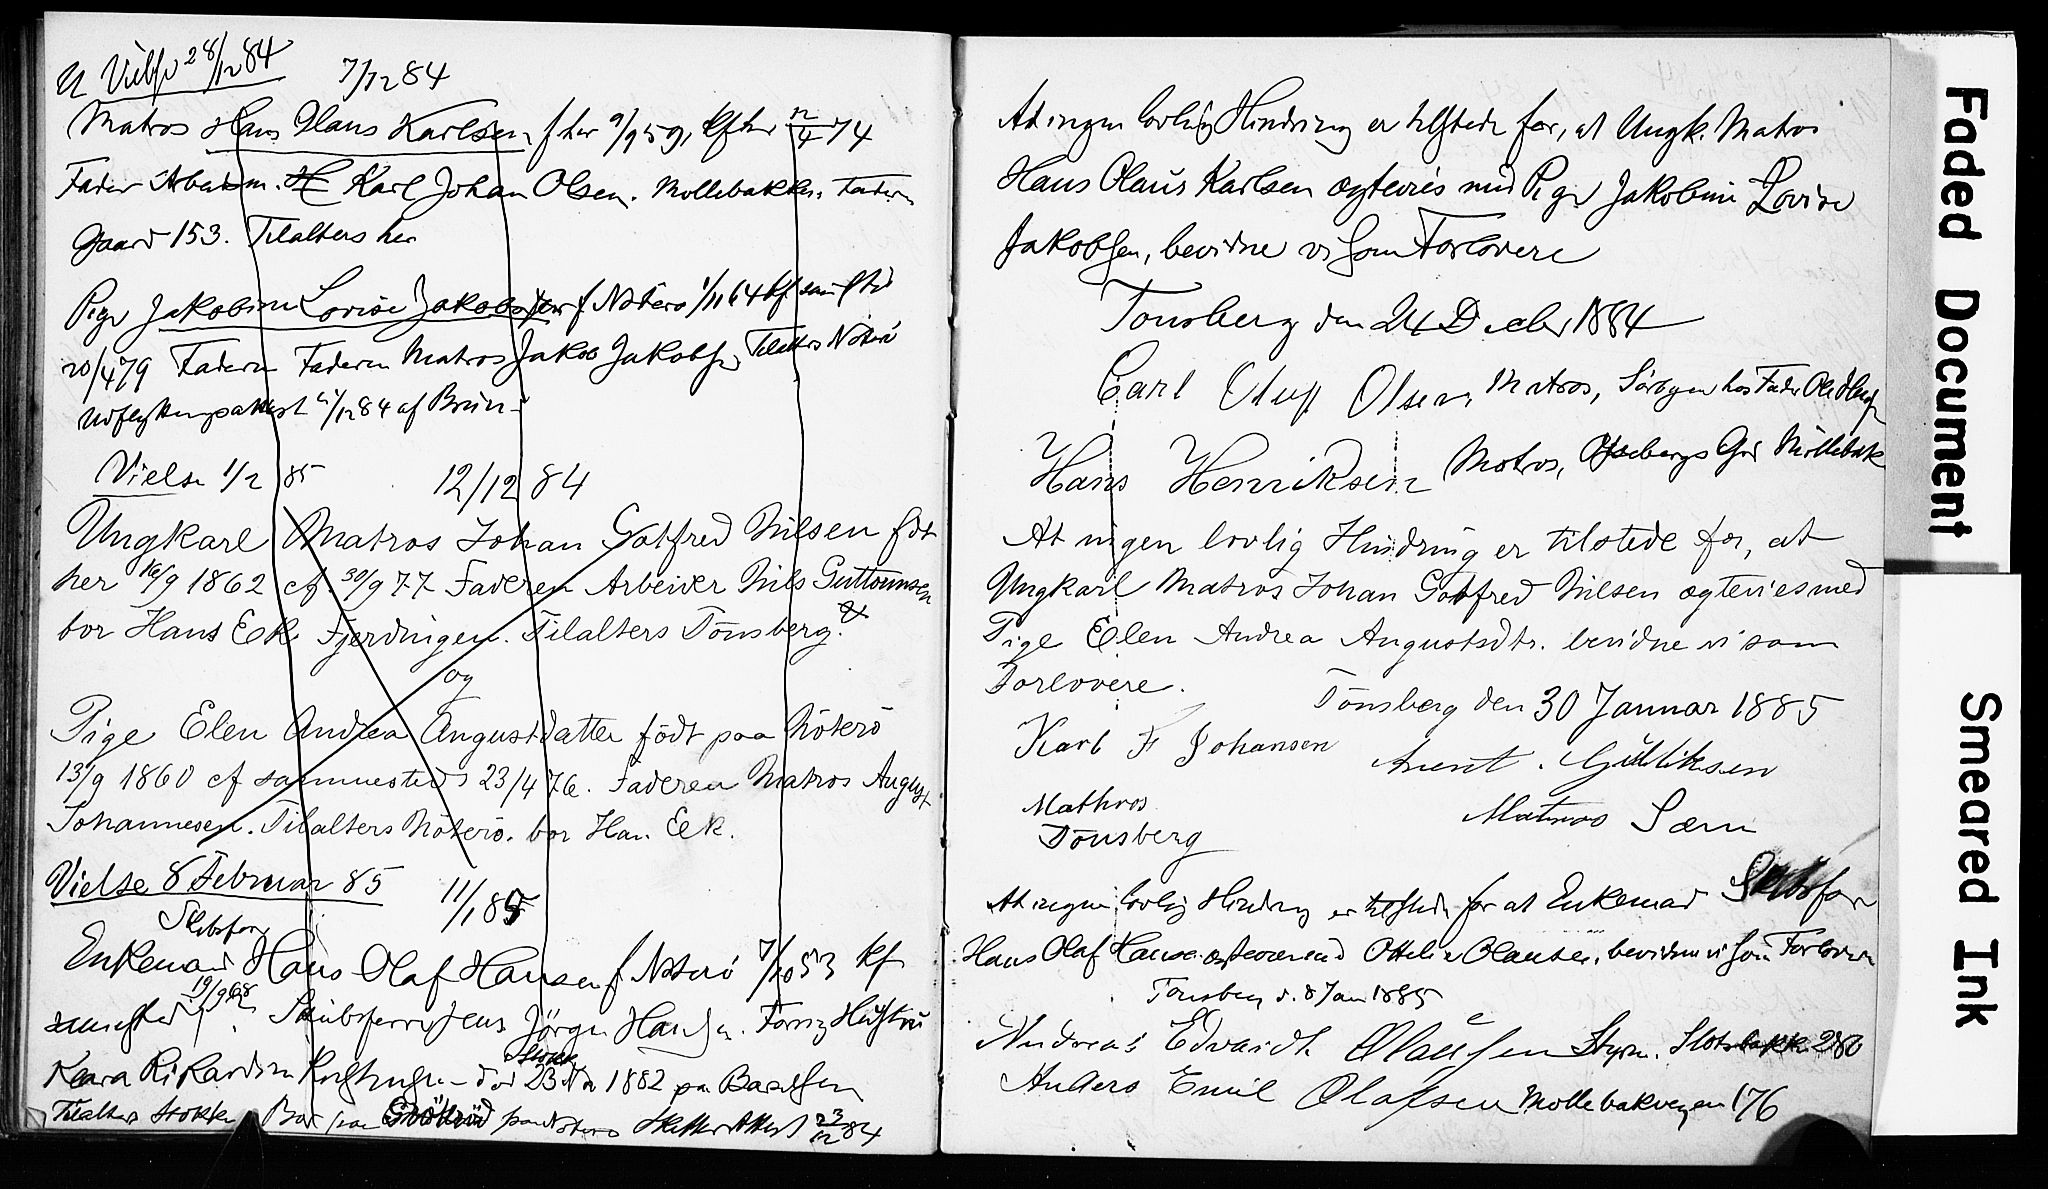 Vielse 28/12 84
7/12 84
Matros Hans Olaus Karlsen f her 9/9 59, kf her 12/4 74
Fader Arbeidsm. Karl Johan Olsen. Møllebakken. Faderens
Gaard 153. Tilalters her
Pige Jakobine Lovise Jakobsen f Nøterø 1/11 64 kf samsteds
20/4 79 Faderen Faderen Matros Jakob Jakobsen Tilalters Nøterø
Udflytningsattest /12 84 af Brun
Vielse 1/2 85
12/12 84
Ungkarl Matros Johan Gotfred Nilsen født
her 16/9 1862 cf. 30/9 77 Faderen Arbeider Nils Guttormsen
bor Hans Eek Fjerdingen. Tilalters Tönsberg.
og
Pige Elen Andrea Augustdatter född paa Nöterö
13/9 1860 cf sammesteds 23/4 76. Faderen Matros August
Johannesen. Tilalters Nöterö. bor Han. Eek.
Vielse 8 Februar 85
11/1 85
Skibsfør
Enkemand Hans Olaf Hansen f Nøterø 7/10 53 kf
samsted 19/9 68 Skibsfører Jens Jörgen Hansen. Forrig Hustru
Kaara Rikardine død 23 Nov 1882 paa
Tilalters Stokke Bor paa paa Nøterø Skifteattest 23/12 84
At ingen lovlig Hindring er tilstede for, at Ungk. Matros
Hans Olaus Karlsen ægtevies med Pige Jakobine Lovise
Jakobsen, bevidne vi som Forlovere
Tonsberg den 24 Decber 1884
Carl Oluf Olsen, Matros, Sörbyen hos Fader
Hans Henriksen Matros, Møllebak
At ingen lovlig Hindring er tilstede for, at
Ungkarl Matros Johan Gotfred Nilsen ægtevies med
Pige Elen Andrea Augustsdtr. bevidne vi som
Forlovere.
Tönsberg den 30 Januar 1885
Karl F Johansen
Anent. Gulliksen
Mathros
Tönsberg
Matros Sæm
At ingen lovlig Hindring er tilstede for at Enkemand Skibsfør
Hans Olaf Hansen Ottelie Olausen, bevidne vi som Forlovere
Tonsberg d. 8 Jan 1885
Andreas Edvardt Olausen Styrm. Slotsbakken 280
Anders Emil Olafsen Møllebakveyen 176
Faded Document
Smeared Ink